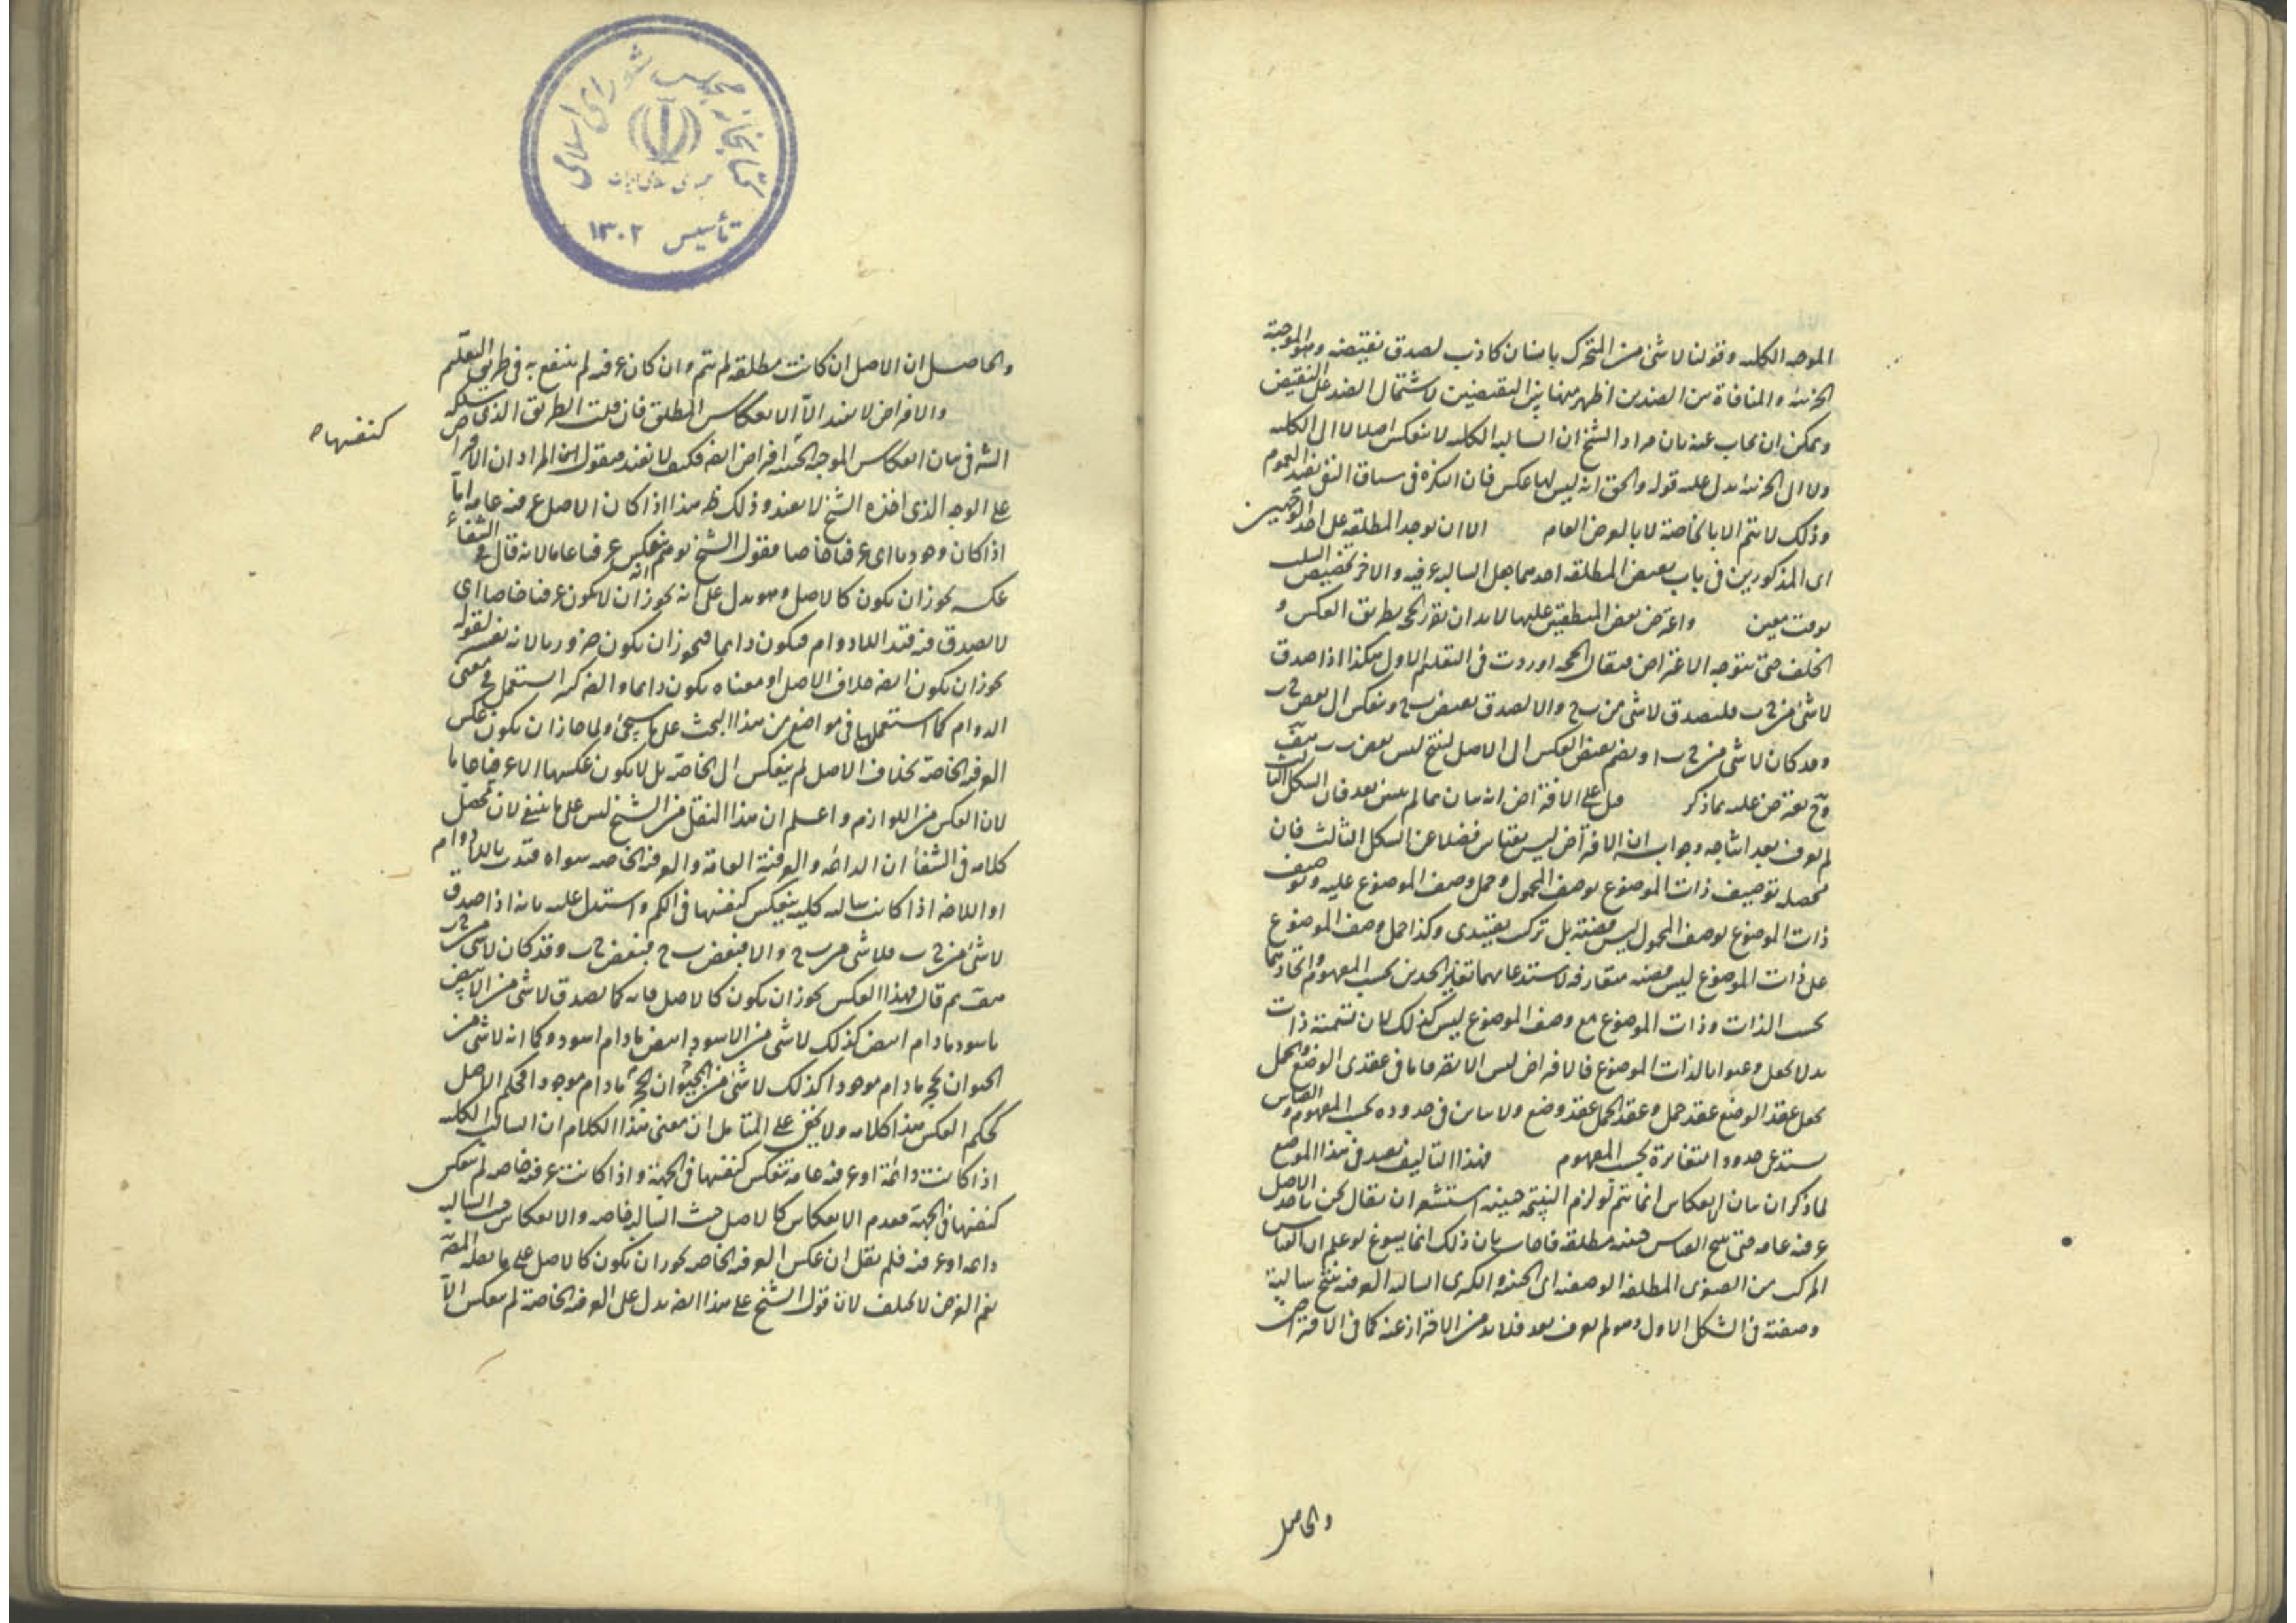 الموجبه الكليه وقولنا لا شئ من المتحرك بانسان كاذب لصدق نقيضه وهو الموجبة
الجزئية والمنافاة بين الضدين اظهر منها بين النقيضين لاشتمال الضد على النقيض
ويمكن ان يجاب عنه بان مراد الشيخ ان السالبه الكليه لا ينعكس اصلا لا الى الكليه
ولا الى الجزئية يدل عليه قوله والحق انه ليس لها عكس فان النكرة فى سياق النفى يفيد العموم
وذلك لا يتم الا بالخاصة لا بالعرض العام الا ان يوجد المطلقه على احد الوجهين
اى المذكورين فى باب تناقض المطلقه احدهما جعل السالبه عرفيه والاخر تخصيص السلب
بوقت معين واعترض بعض المنطقيين عليها لا بد ان نقرر الحجه بطريق العكس و
الخلف حتى يتوجه الاعتراض فيقال الحجه اوردت فى التعليم الاول هكذا اذا صدق
لا شئ من ج ب فليصدق لا شئ من ب ج والا لصدق بعض ب ج وينعكس الى بعض ج ب
وقد كان لا شئ من ج ب او يضم نقيض العكس الى الاصل لينتج ليس بعض ب ب هف
وح يعترض عليه بما ذكر قيل على الافتراض انه بيان بما لم يتبين بعد فان الشكل الثالث
لم يعرف بعد انتاجه وجوابه ان الافتراض ليس بقياس فضلا عن الشكل الثالث فان
محصله توصيف ذات الموضوع بوصف المحمول وحمل وصف الموضوع عليه وتوصيف
ذات الموضوع بوصف المحمول ليس قضية بل تركيب تقييدى وكذا حمل وصف الموضوع
على ذات الموضوع ليس قضيه متعارفه لاستدعائهما تغاير الحدين بحسب المفهوم واتحادهما
بحسب الذات وذات الموضوع مع وصف الموضوع ليس كذلك لان تسمية ذات
بدلا يجعل وعنوانا لذات الموضوع فالافتراض ليس الا تصرفا ما فى عقدى الوضع والحمل
بجعل عقد الوضع عقد حمل وعقد الحمل عقد وضع ولا تباين فى حدوده بحسب المفهوم والقياس
يستدعى حدودا متغايرة بحسب المفهوم فهذا التاليف يفيد فى هذا الموضع
لما ذكر ان بيان الانعكاس انما يتم لو لزم النتيجه حينيه استشعر ان يقال نحن ناخذ الاصل
عرفيه عامه حتى ينتج القياس حينيه مطلقه فاجاب بان ذلك انما يسوغ لو علم ان القياس
المركب من الصغرى المطلقه الوصفيه اى الحينيه والكبرى السالبه العرفيه ينتج سالبة
وصفية فى الشكل الاول وهو لم يعرف بعد فلا بد من الاحتراز عنه كما فى الافتراض
والحاصل
والحاصل ان الاصل ان كانت مطلقه لم يتم وان كان عرفيه لم ينتفع به فى طريق التعليم
والافتراض لا يفيد الا الانعكاس المطلق فان قلت الطريق الذى سلكه
الشيخ فى بيان انعكاس الموجبه الجزئيه افتراض ايضه فكيف لا يفيد فيقول ليس المراد ان الافتراض
على الوجه الذى اخذه الشيخ لا يفيد وذلك ظ هذا اذا كان الاصل عرفيه عامه اما
اذا كان وجوديا اى عرفيا خاصا فقول الشيخ يوهم انه ينعكس عرفيا عاما لانه قال فى الشفاء
عكسه يجوز ان يكون كالاصل وهو يدل على انه يجوز ان لا يكون عرفيا خاصا اى
لا يصدق فيه قيد اللادوام فيكون دائما فيجوز ان يكون ضروريا لانه نفسه لقوله
يجوز ان يكون ايضه خلاف الاصل او معناه يكون دائما والضروره استعمل فى معنى
الدوام كما استعملها فى مواضع من هذا البحث على ما سيجئ ولما جاز ان يكون عكس
العرفيه الخاصة بخلاف الاصل لم ينعكس الى الخاصة بل لا يكون عكسها الا عرفيا عاما
لان العكس من اللوازم واعلم ان هذا النقل من الشيخ ليس على ما ينبغى لان محصل
كلامه فى الشفا ان الدائمه والعرفية العامه والعرفيه الخاصه سواء قيدت باللادوام
او اللاضروره اذا كانت سالبه كليه ينعكس كنفسها فى الكم واستدل عليه بانه اذا صدق
لا شئ من ج ب فلا شئ من ب ج والا فبعض ب ج فبعض ج ب وقد كان لا شئ من ج ب
هف ثم قال فهذا العكس يجوز ان يكون كالاصل فانه كما يصدق لا شئ من الابيض
باسود ما دام ابيض كذلك لا شئ من الاسود ابيض ما دام اسود وكما انه لا شئ من
الحيوان بحجر ما دام موجودا كذلك لا شئ من الحجر بحيوان ما دام موجودا فحكم الاصل
كحكم العكس هذا كلامه ولا يخفى على المتامل ان معنى هذا الكلام ان السالبه الكليه
اذا كانت دائمة او عرفيه عامه تنعكس كنفسها فى الجهة واذا كانت عرفيه خاصه لم ينعكس
كنفسها فى الجهة فعدم الانعكاس كالاصل حيث السالبه خاصه والانعكاس حيث السالبه
دائمه او عرفيه فلم يقل ان عكس العرفيه الخاصه يجوز ان يكون كالاصل على ما نقله المصه
نعم الغرض لا يختلف لان قول الشيخ على هذا ايضه يدل على العرفيه الخاصة لم ينعكس الا
كنفسها ص
كتابخانه مجلس شورای اسلامی
جمهوری اسلامی ایران
تأسیس ۱۳۰۲